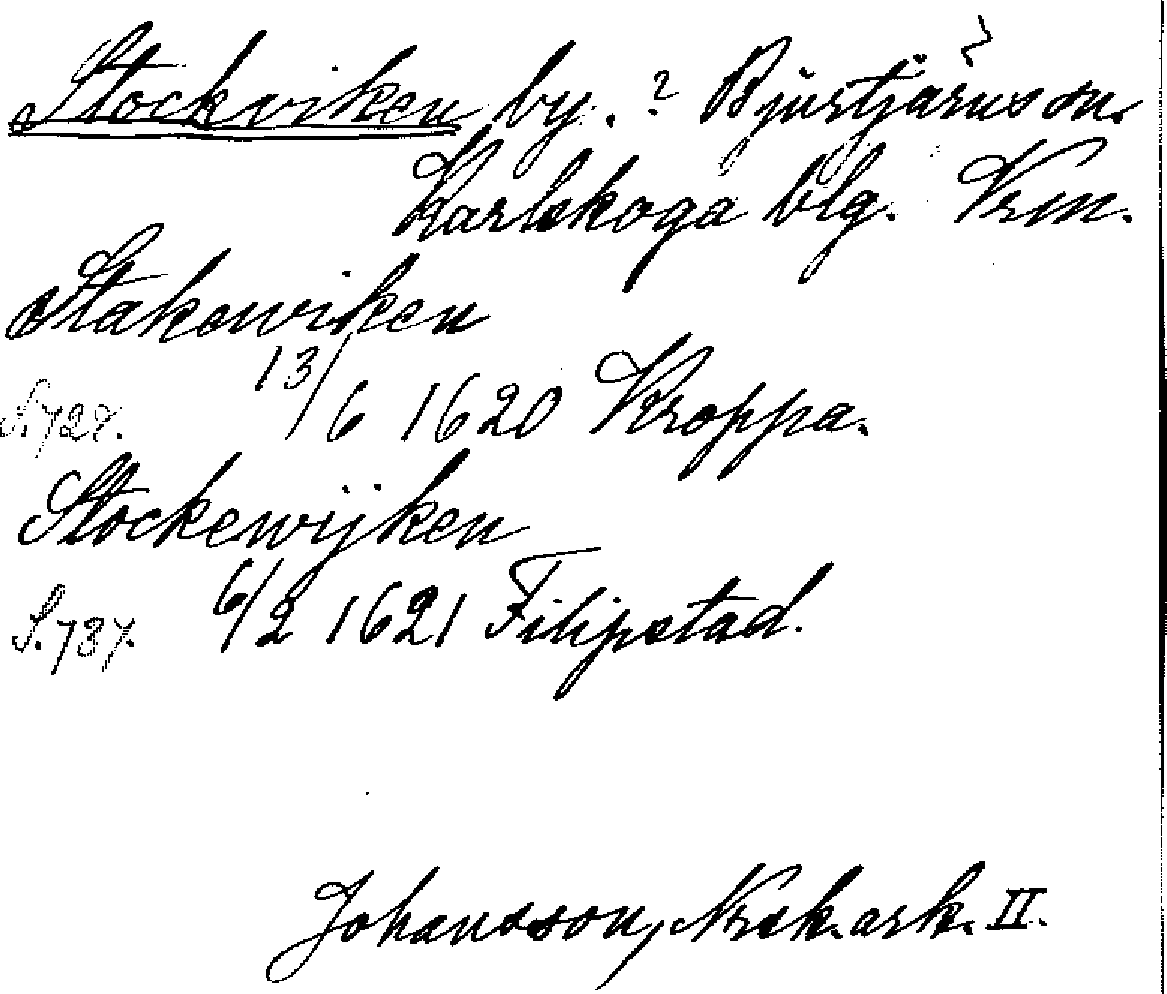 Stockviken by. ? Bjurtjärns sn.
Karlskoga blg. Vrm.
Stakewiken
13/6 1620 Kroppa.
S. 728.
Stockewijken
S. 737. 6/2 1621 Filipstad.
Johansson, Noraskog. ark. II.